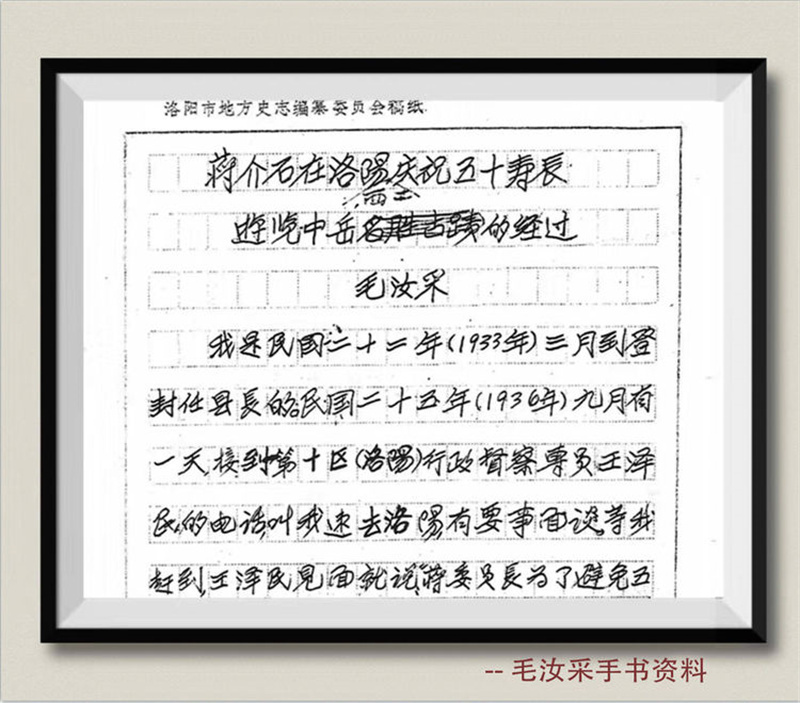 洛阳市地方史志编纂委员会稿纸
蒋介石在洛陽庆祝五十寿辰
遊览中岳名胜古蹟的经过
毛汝采
我是民国二十二年(1933年)三月到登
封任县長的民国二十五年(1936年)九月有
一天接到第十区(洛陽)行政督察専员王泽
民的电话叫我速去洛陽有要事面谈等我
赶到王泽民見面就说蒋委员長为了避免五
-- 毛汝采手书资料